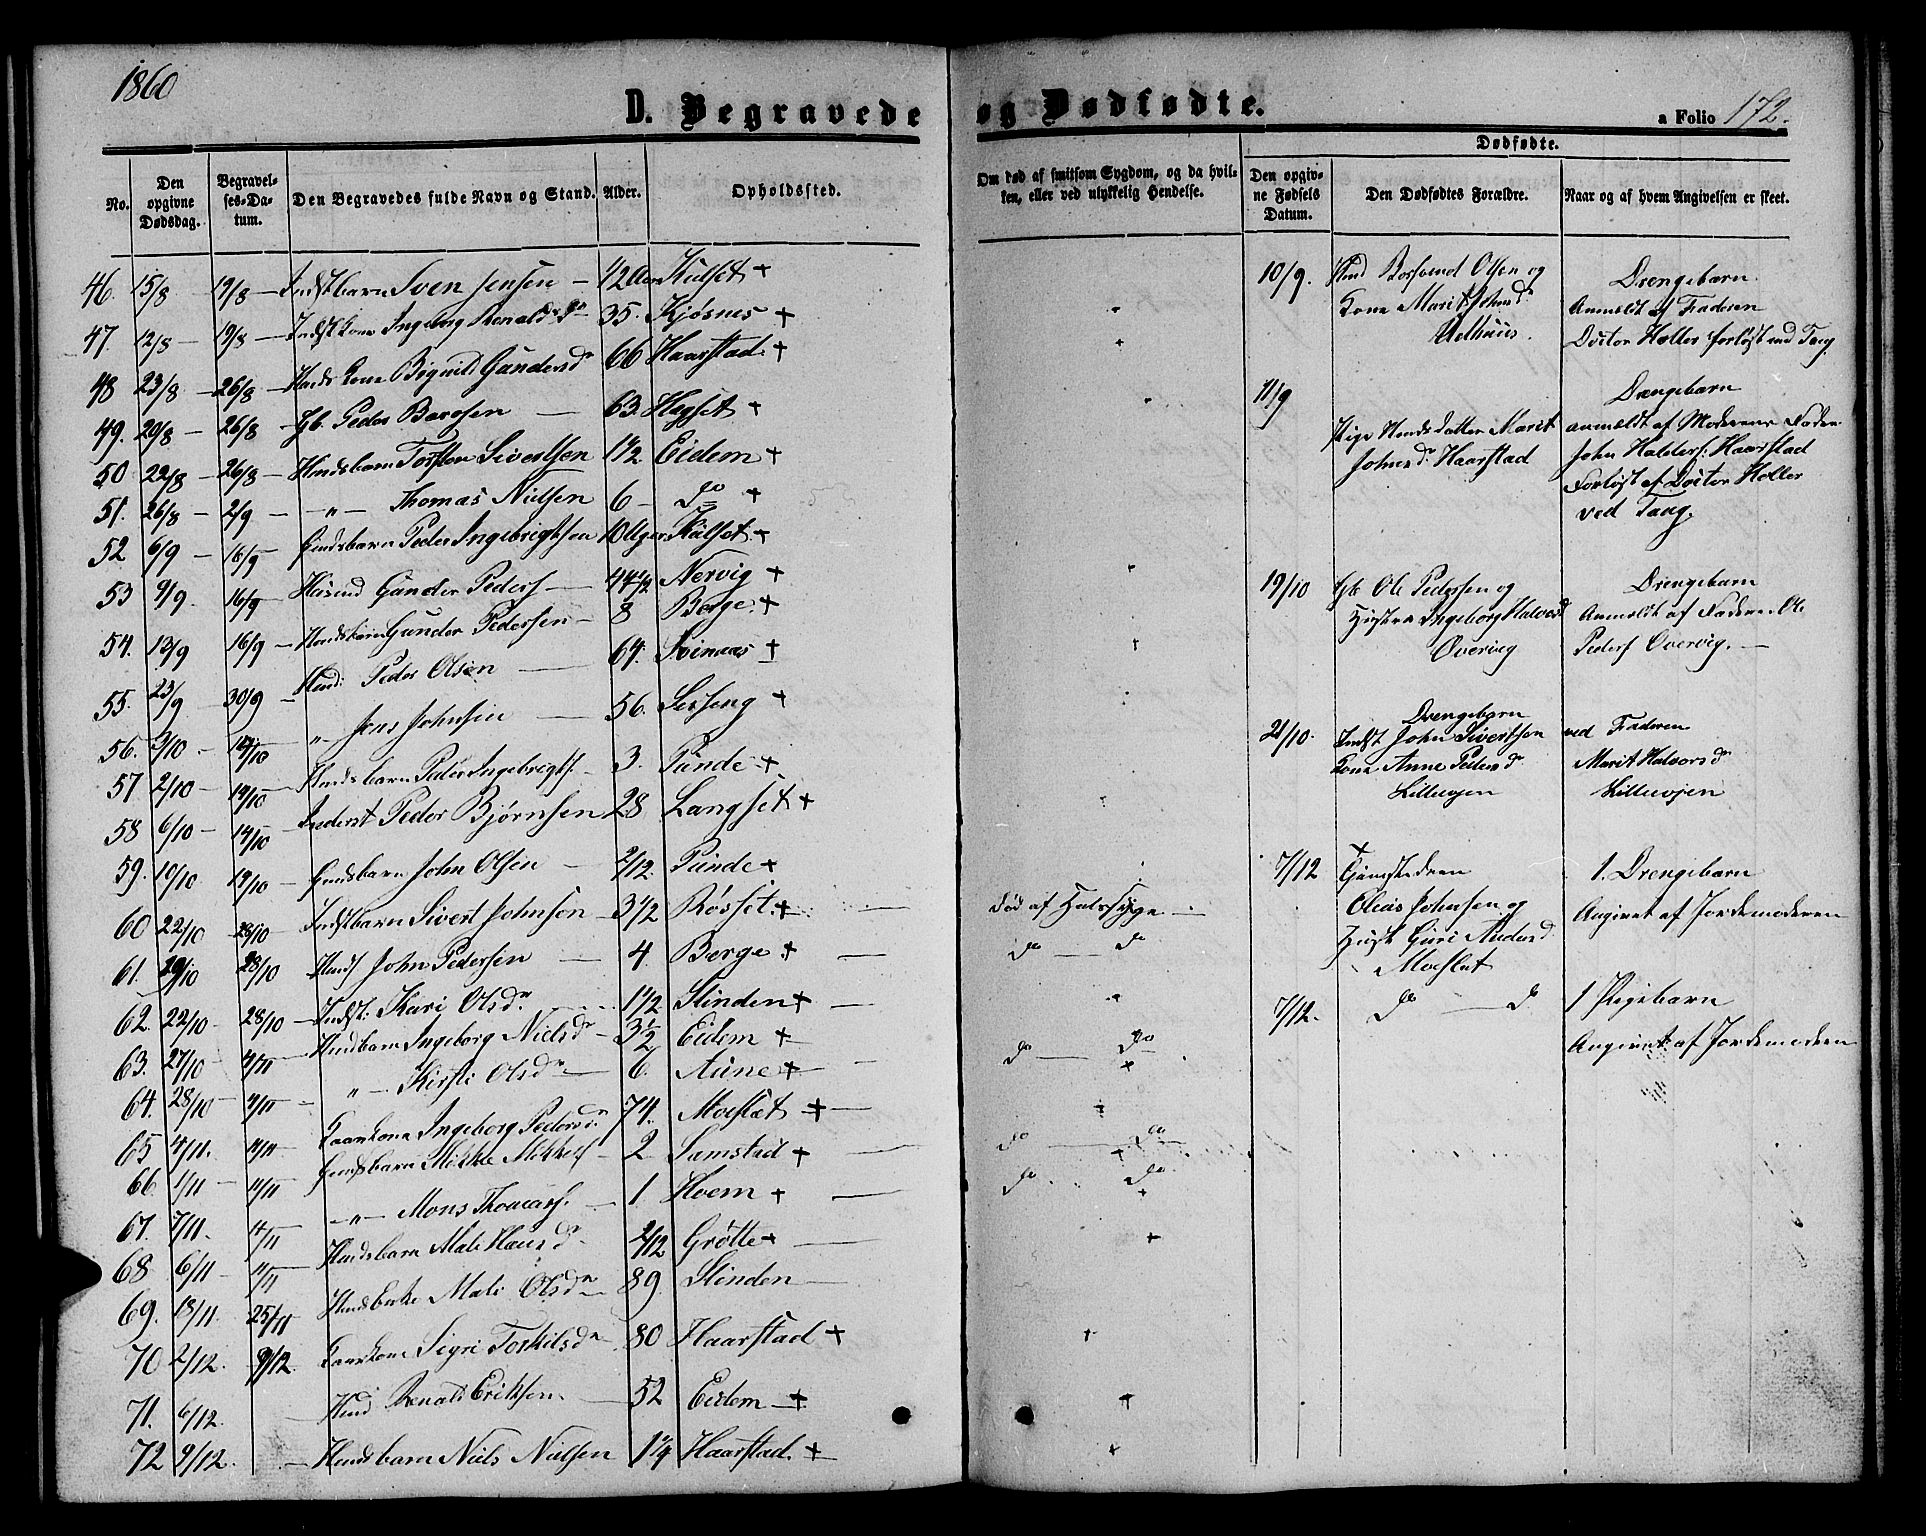 1860
D. Begravede og Dødfødte.
a Folio 172.
No.
Den opgivne Dødsdag.
Begravelses-Datum.
Den Begravedes fulde Navn og Stand.
Alder.
Opholdssted.
Om død af smitsom Sygdom, og da hvilken, eller ved ulykkelig Hendelse.
Dødfødte.
Den opgivne Fødsels Datum.
Den Dødfødtes Forældre.
Naar og af hvem Angivelsen er skeet.
46. 15/8 19/8 — Indstbarn Sven Jensen — 12 Kulset +
47. 12/8 — 19/8 — Indst kone Ingeborg Renaldsdr 35. Kjøsnes +
48 23/8 — 26/8 — Kone Gundersdr 66 Haarstad +
49. 20/8 — 26/8 — Gb. Peder Bardsen — 63. Hegset +
50 22/8 — 26/8 — Huusbarn Torsten Sivertsen 1 1/2 Eidem +
51. 26/8 — 2/9 — — " — Thomas Nielsen 6 — Do +
52 6/9 — 16/9 — Huusbarn Peder Ingebrigtsen 10 Uger Kulset +
53 9/9. 16/9 — Gunder Peders — 44 1/2 Nervig +
54. 13/9 16/9 — Gunder Pedersen — 8 Berge +
55. 23/9 30/9 — Peder Olsen — 64. Svinaas +
56. 3/10 — 14/10 — " Jens Johnsen — 56. Sesseng +
57 2/10 — 14/10 — Peder Ingebrigts. — 3. Punde +
58 6/10 — 14/10 — Inderst Peder Bjørnsen 28 Langset +
59. 10/10 19/10 — Huusbarn John Olsen — 2/12 Punde +
60 22/10 28/10 — Indstbarn Sivert Johnsen — 3 1/2 Rosset + — død af Halssyge —
61. 20/10 28/10 — John Pedersen — 4. Berge + — do — do
62. 22/10 — 28/10 — Indst: Kari Olsdr. 1 1/2 Slinden + —
63. 27/10 4/11 — Ingeborg Nielsdr — 3 1/2 Eidem + do — do
64. 28/10 — 4/11 — " — Kirsti Olsdr — 6. Aune + —
65 4/11. 11/11 — Kaarkone Ingeborg Pedersdr 74. Moeslet + —
66. 1/11 11/11 — Huusbarn Mikkel Mikkels — 2 Samstad + — do — do
67. 7/11. 11/11 — " — Mons Thomass. — 1 Hoem + — do do
68 6/11 — 11/11 Mali Hansdr — 2/12 Grøtte + —
69. 18/11. 25/11 Mali Olsdr — 89. Slinden —
70 2/12. 9/12. Kaarkone Sigri Torkilsdr 80 Haarstad +
71. 6/12. — Renald Eriksen — 52 Eidem +
72 9/12. — Huusbarn Niels Nielsen 1 1/4 Haarstad. +
10/9. Olsen og
Kone Marit Johnsdr
Uvthuus.
Drengebarn
Anmeldt af Faderen
Doctor Holler forløst ved Tang
11/9
Pige Marit
Johnsdr Haarstad
Drengebarn
anmeldt af Moderens Fader
John Halders: Haarstad
Forløst af Doctor Holler
ved Tang.
19/10 Gb. Ole Pedersen og
Hustru Ingeborg Halvorsd
Overvig
Drengebarn
Anmeldt af Faderen Ole
Peders Overvig. —
21/10. Drengebarn
Indst John Sivertsen
Kone Anne Pedersd
Lilleugjen
ved Faderen
Marit Halvorsd
Lilleugjen
7/12 +
Tjenestedren
Oleas Johnsen og
Hust Guri Andersd
Moeslet
1. Drengebarn
Angivet af Jordemoderen
7/12. do — d
1 Pigebarn
Angivet af Jordemoderen